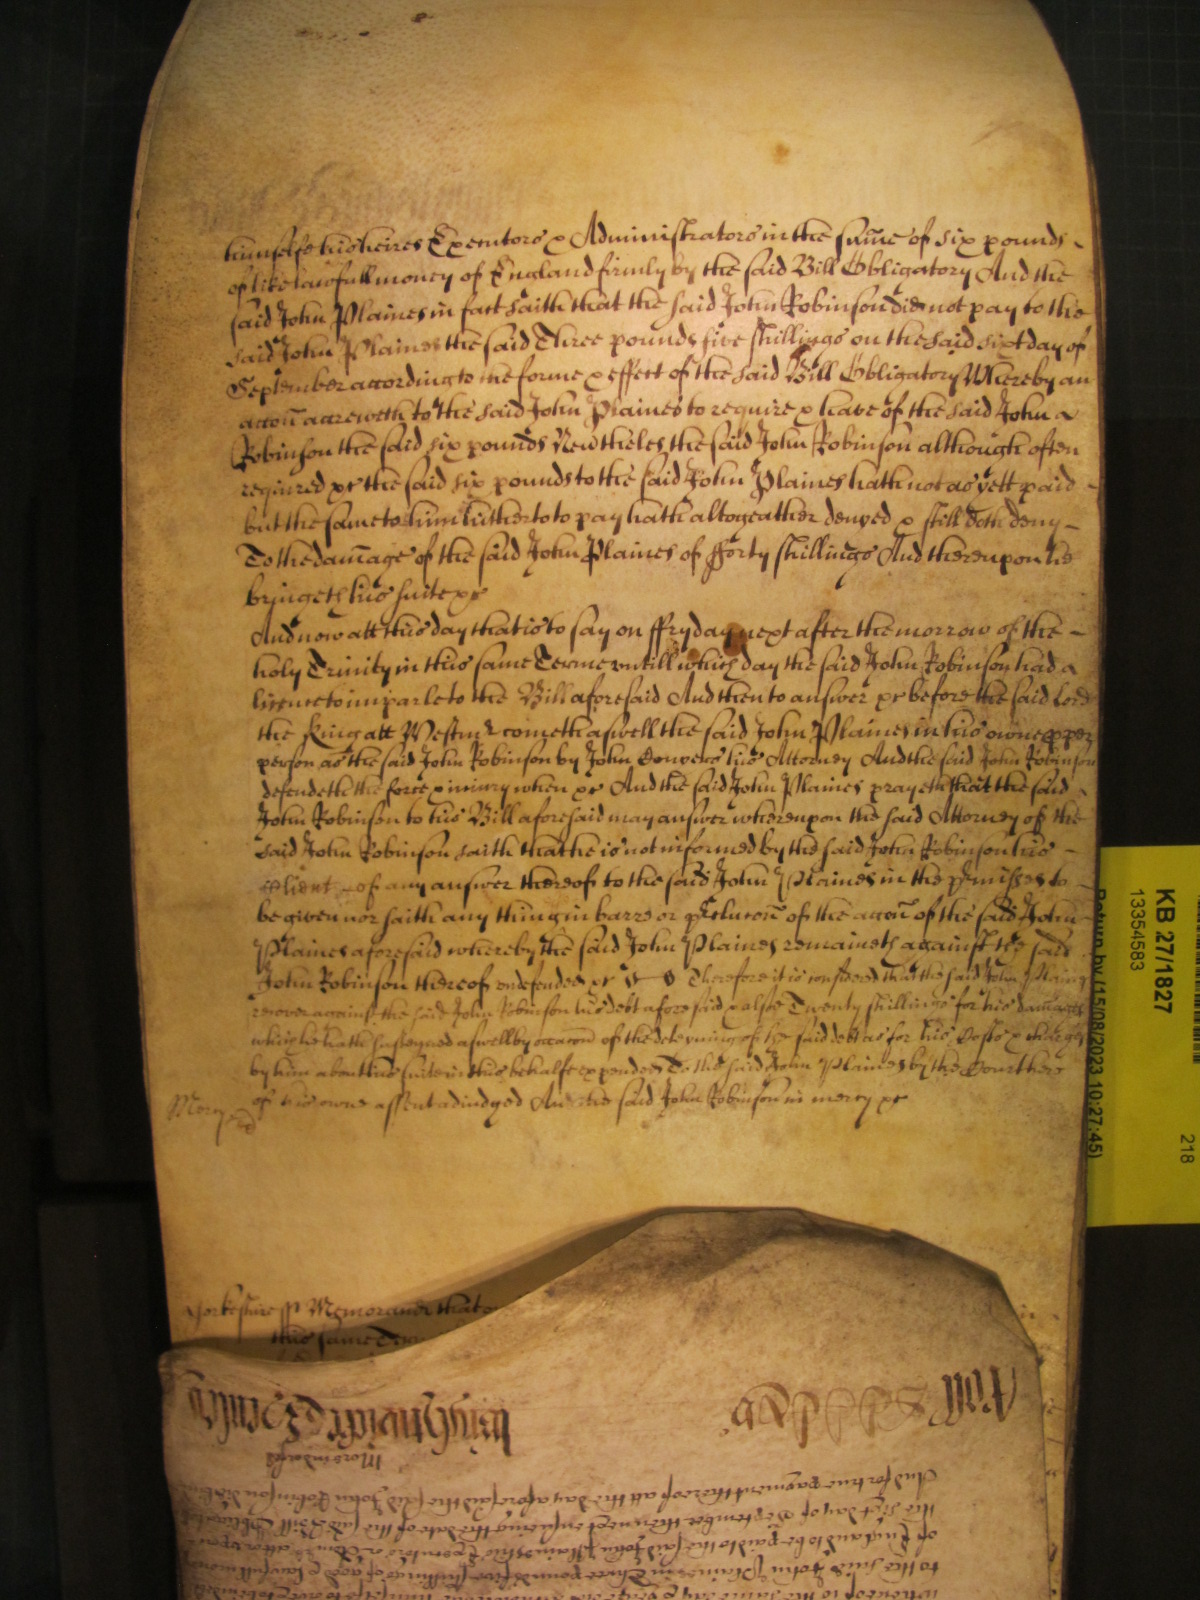 himselfe his heires Executors & Administrators in the sum̃e of six pounds
of like lawfull money of England firmly by the said Bill Obligatory And the
said John Plaines in fact saith that the said John Robinson did not pay to the
said John Plaines the said Three pounds five shillings on the said sixt day of
September according to the forme & effect of the said Bill Obligatory Whereby an
accon̄ accreweth to the said John Plaines to require & have of the said John
Robinson the said six pounds Neverthelesse the said John Robinson although often
required &c the said six pounds to the said John Plaines hath not as yett paid
but the same to him hitherto to pay hath altogeather denyed & still doth deny
To the dam̃age of the said John Plaines of fforty shillings And thereupon he
bringeth his suite &c
And now att this day that is to say on ffryday next after the morrow of the
holy Trinity in this same Terme untill which day the said John Robinson had a
licence to imparle to the Bill aforesaid And then to answer &c before the said Lord
the King att Westmr cometh aswell the said John Plaines in his owne pper
person as the said John Robinson by John Conyers his Attorney And the said John Robinson
defendeth the force & iniury when &c And the said John Plaines prayeth that the said
John Robinson to his Bill aforesaid may answer whereupon the said Attorney of the
said John Robinson saith that he is not informed by the said John Robinson his
Client of any answer thereof to the said John Plaines in the p̃misses to
be given nor saith any thing in barre or p̃clucon̄ of the accon̄ of the said John
Plaines aforesaid whereby the said John Plaines remaineth against the said
John Robinson thereof undefended &c Therefore it is considered that the said John Plaines
recover against the said John Robinson his debt aforesaid & alsoe Twenty shillings for his damages
which he hath susteyned aswell by occacon̄ of the deteyning of the said debt as for his Costs & charges
by him about his suite in this behalfe expended To the said John Plaines by the Court here
of his owne assent adiudged And the said John Robinson in mercy &c
Mercy
Yorkeshire ss Memorand that
this same Ter
KB 27/1827
13354583
218
Return by (15/08/2023 10:27:45)
Roll
More
And for true payment thereof att the day aforesaid the said John Robinson did
the sixt day of September then next ensuing the date of the said Bill
of England to be paid to the said John Plaines his Executors
to the said John Plaines in Three pounds five shillings of good & lawfull money